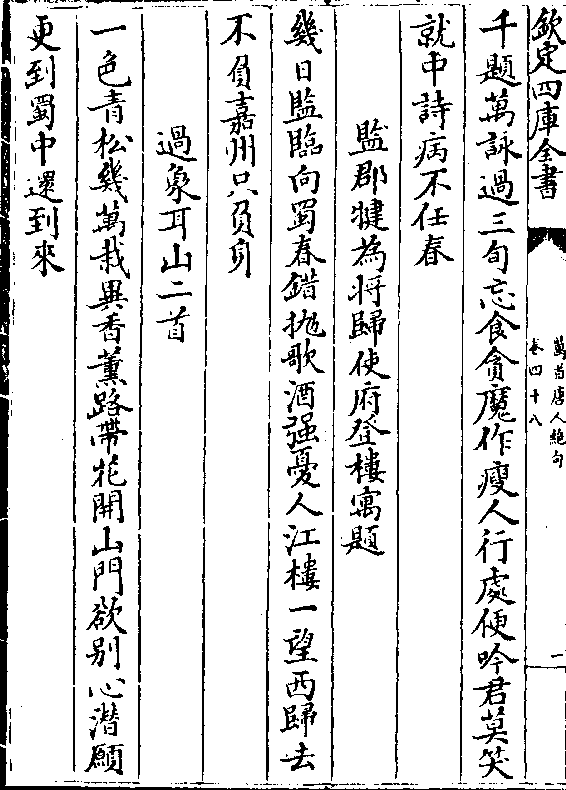 欽定四庫全書
萬首唐人絶句
卷四十八
一
千題萬詠過三旬忘食貪魔作瘦人行處便吟君莫笑
就中詩病不任春
監郡犍為將歸使府登樓寓題
幾日監臨向蜀春錯抛歌酒强憂人江樓一望西歸去
不負嘉州只負身
過象耳山二首
一色青松幾萬栽異香薰路帶花開山門欲别心潛願
更到蜀中還到來